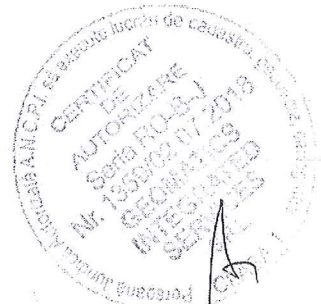 Persoana Juridică Autorizată A.N.C.P.I. să execute lucrări de cadastru, geodezie,
CERTIFICAT
DE
AUTORIZARE
Seria RO-B-J
Nr. 1353/02.07.2018
GEOMATICS
INTEGRATED
SERVICES